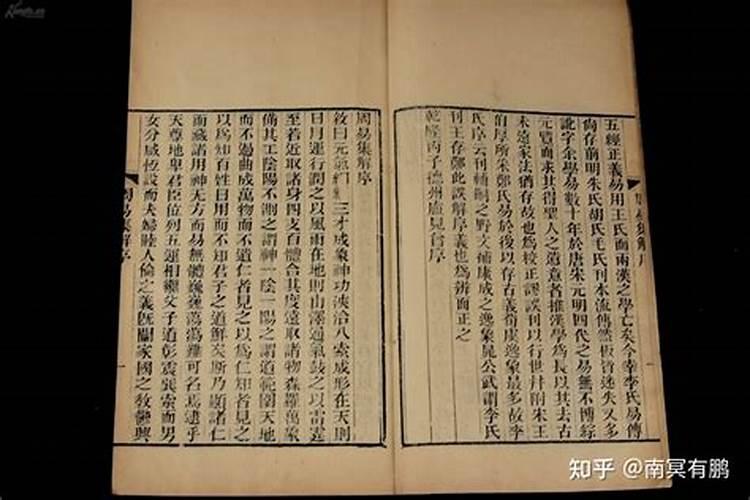 五經正義易用王氏而兩漢之學亡矣今幸李氏易傳
尙存前明朱氏胡氏毛氏刊本流傳然板皆迷失又多
訛字余學易數十年於唐宋元明四代之易無不博綜
元覽而求其得聖人之遺意者推漢學爲長以其去古
未遠家法猶存故也爲校正謬誤刊以行世幷附宋王
伯厚所采鄭氏易於後以存古義荀虞逸象最多故李
氏序云刊輔嗣之野文補康成之逸象晁公武謂李氏
刊王存鄭此誤解序義也爲辨而正之
乾隆丙子德州盧見曾序
周易集解序
周易集解序
敘曰元氣三才成象神功浹洽八索成形在天則
日月運行潤之以風雨在地則山澤通氣鼓之以雷霆
至若近取諸身四支百體合其度遠取諸物森羅萬象
備其工陰陽不測之謂神一陰一陽之謂道範圍天地
而不過曲成萬物而不遺仁者見之以爲仁知者見之
以爲知百姓日用而不知君子之道鮮矣斯乃顯諸仁
而藏諸用神无方而易無體巍巍蕩蕩難可名焉逮乎
天尊地卑君臣位列五運相繼父子道彰震巽索而男
女分咸恆設而夫婦睦人倫之義旣闡家國之敎鬱興
周易集解序
知乎 @南冥有鹏